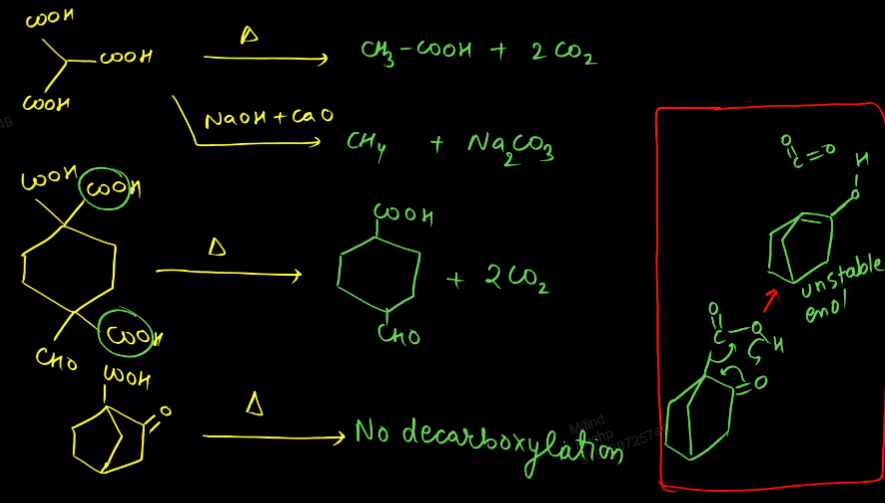 COOH
COOH
COOH
Δ
CH3-COOH + 2 CO2
NaOH + CaO
CH4 + Na2CO3
COOH COOH
COOH
CHO
Δ
COOH
CHO
+ 2CO2
COOH
O
Δ
No decarboxylation
O
C=O
H
O
unstable
enol
O
C-O
H
O